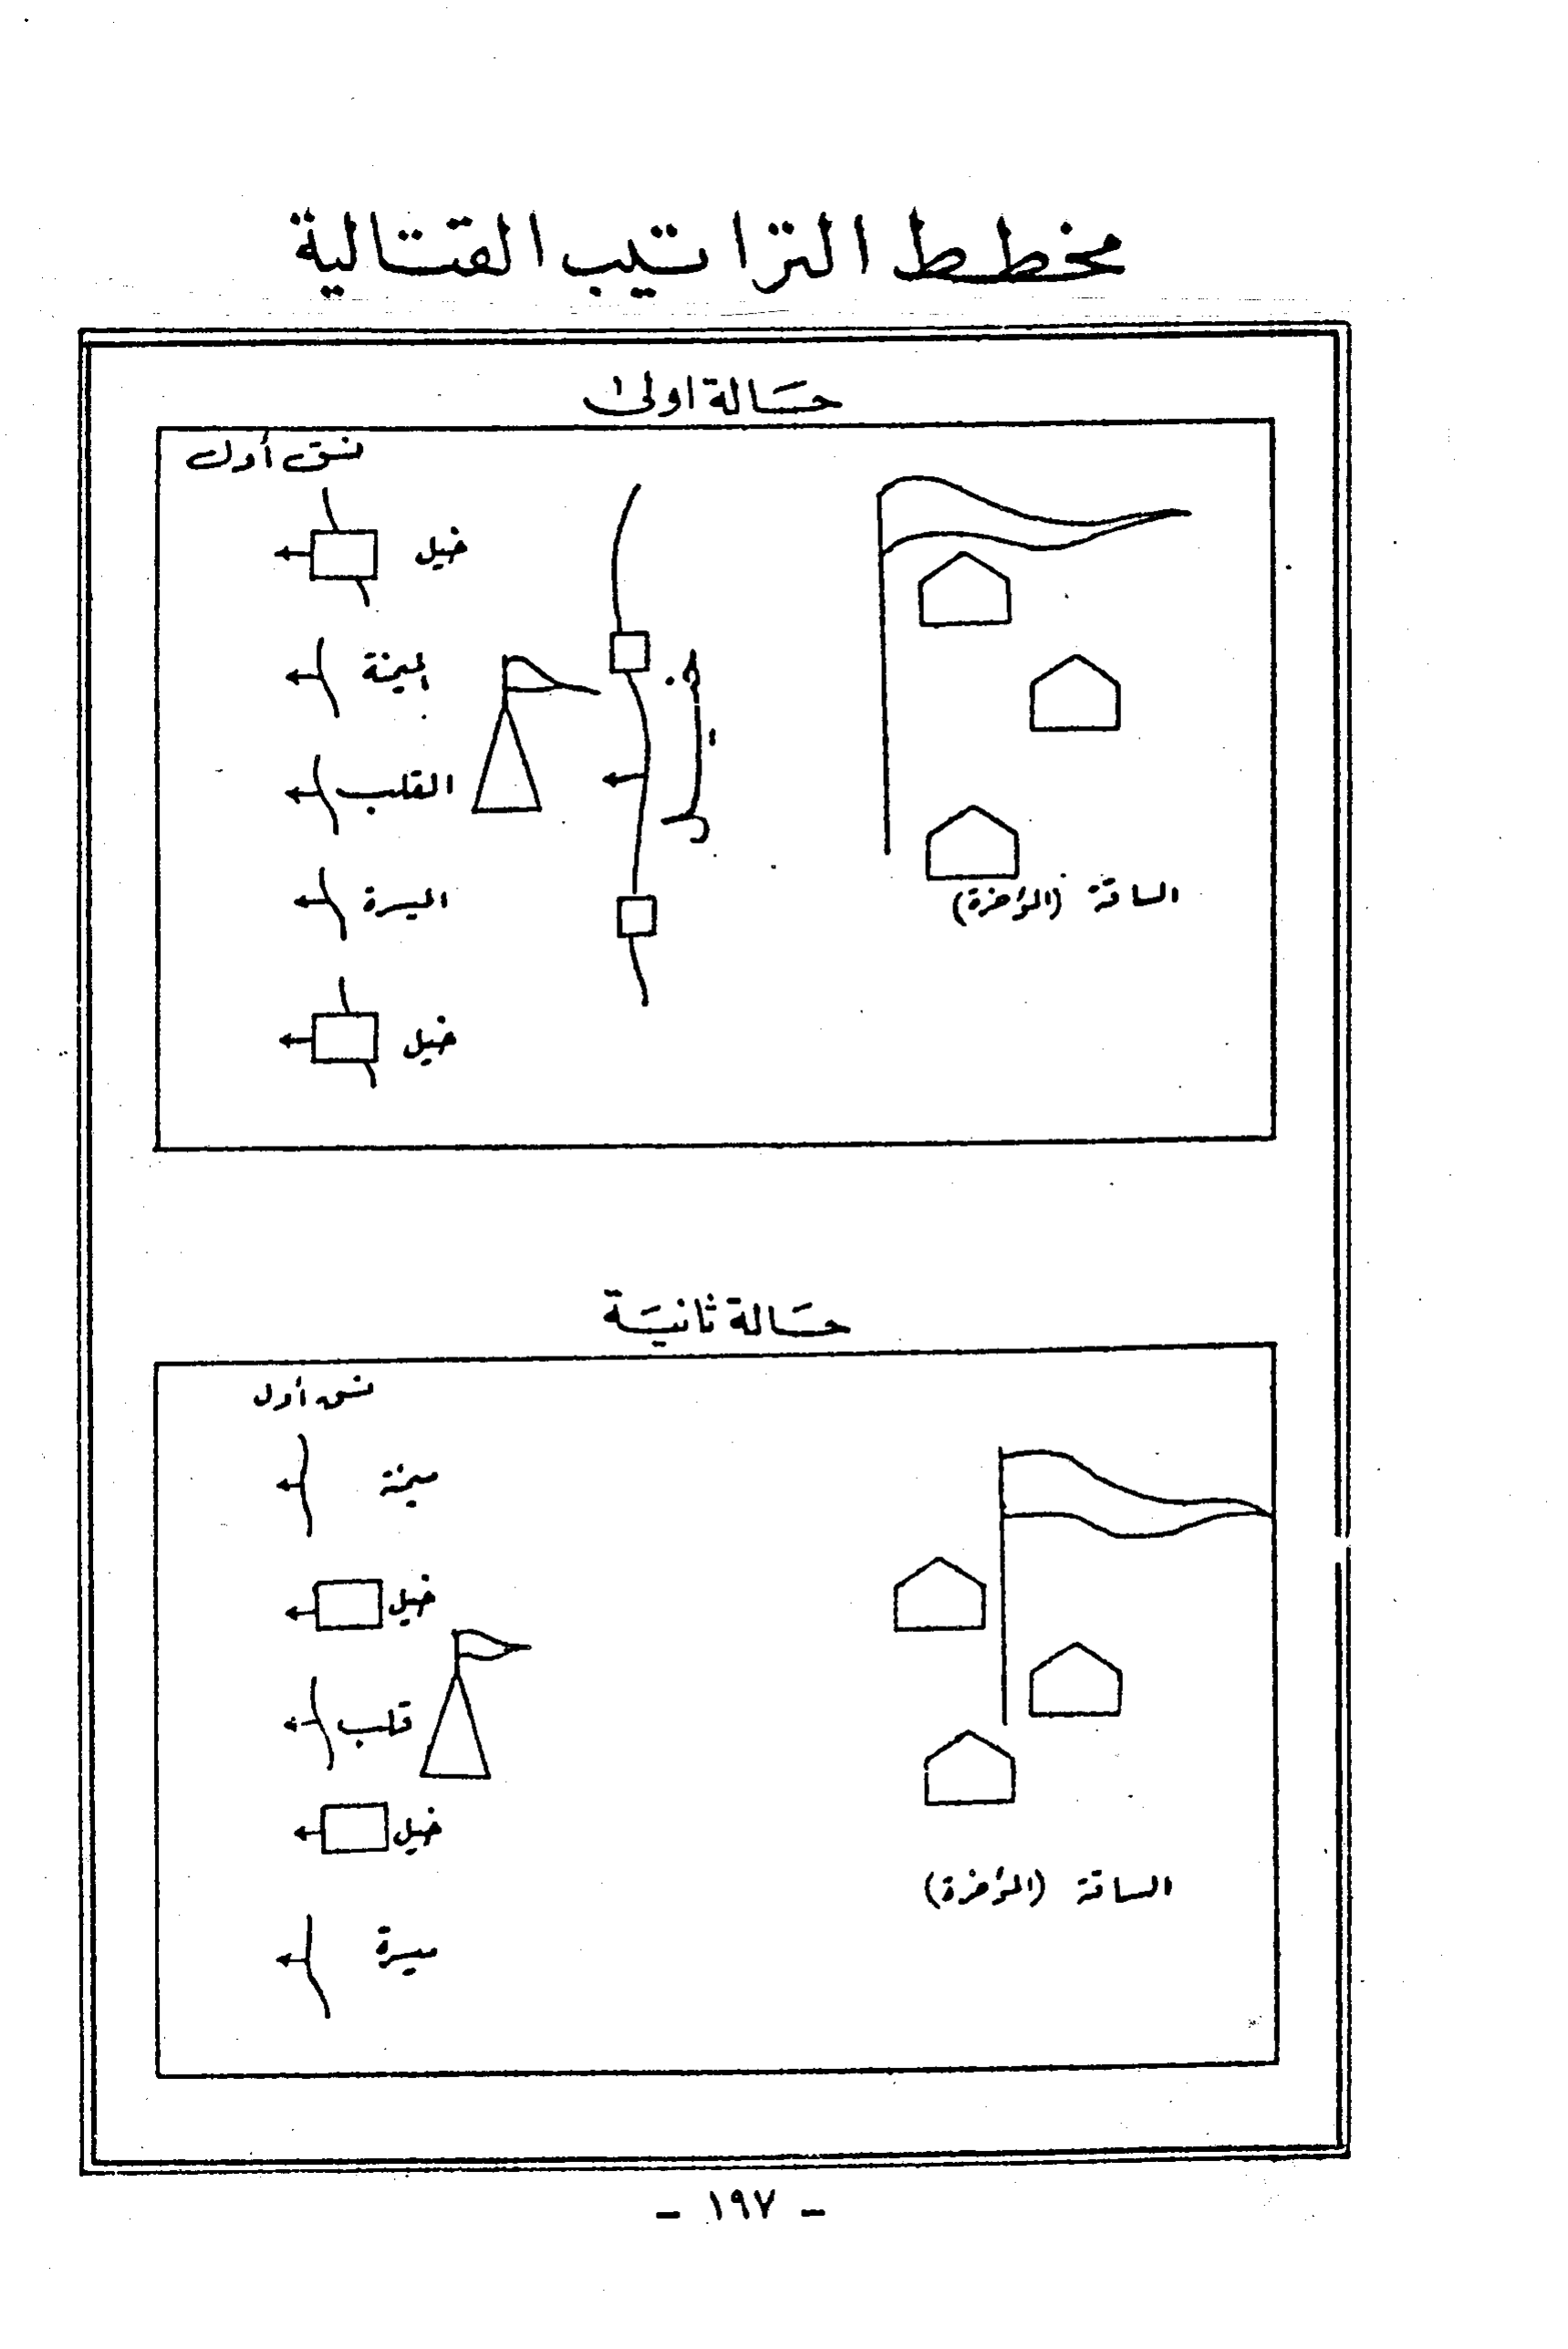 مخطط التراتيب القتالية
حالة اولى
نسق أول
خيل
الميمنة
القلب
الميسرة
خيل
خيل
الساقة (المؤخرة)
حالة ثانية
نسق أول
ميمنة
خيل
قلب
خيل
ميسرة
الساقة (المؤخرة)
- ١٩٧ -